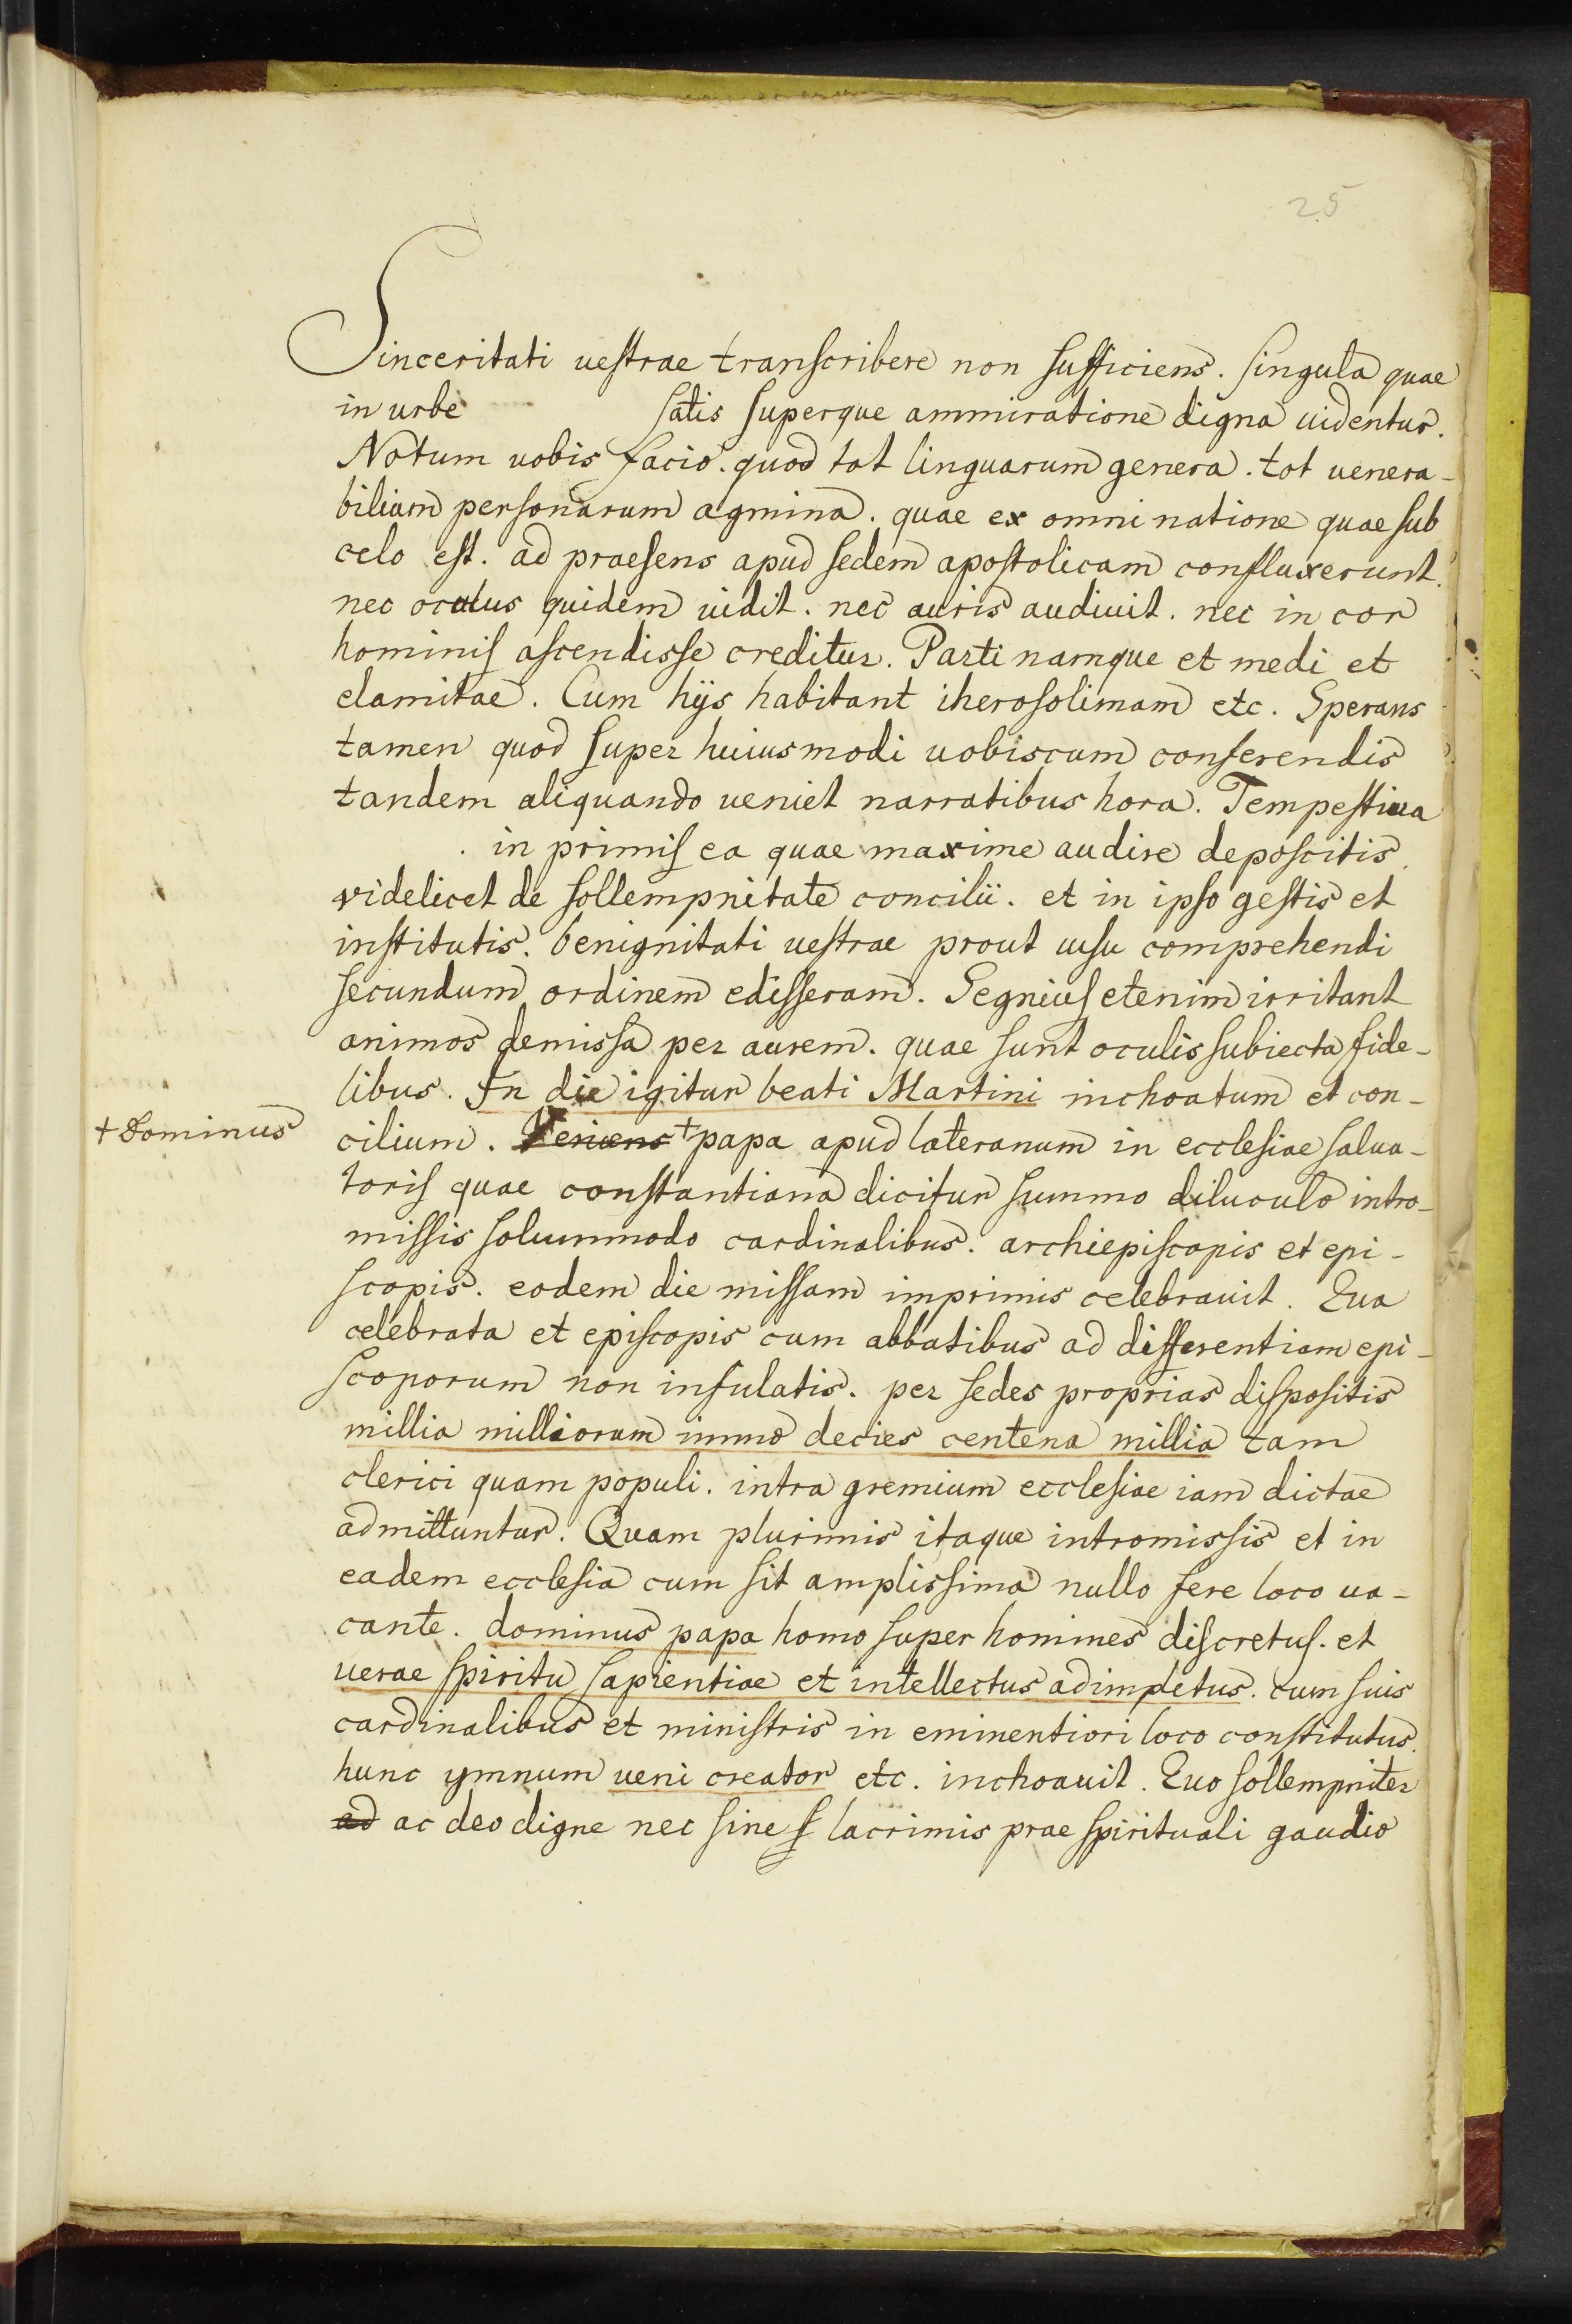 25
Sinceritati uestrae transcribere non sufficiens. singula quae
in urbe satis superque ammiratione digna uidentur.
Notum uobis facio. quod tot linguarum genera. tot uenera-
bilium personarum agmina. quae ex omni natione quae sub
celo est. ad praesens apud sedem apostolicam confluxerunt.
nec oculus quidem uidit. nec auris audiuit. nec in cor
hominis ascendisse creditur. Parti namque et medi et
elamitae. Cum hijs habitant iherosolimam etc. Sperans
tamen quod super huiusmodi uobiscum conferendis
tandem aliquando ueniet narratibus hora. Tempestiua
. in primis ea quae maxime audire deposcitis.
videlicet de sollempnitate concilii. et in ipso gestis et
institutis. benignitati uestrae prout uisu comprehendi
secundum ordinem edisseram. Segnius etenim irritant
animos demissa per aurem. quae sunt oculis subiecta fide-
libus. In die igitur beati Martini inchoatum et con-
+ Dominus
cilium. Veniens + papa apud lateranum in ecclesiae salua-
toris quae constantiana dicitur summo diluculo intro-
missis solummodo cardinalibus. archiepiscopis et epi-
scopis. eodem die missam imprimis celebrauit. Qua
celebrata et episcopis cum abbatibus ad differentiam epi-
scoporum non infulatis. per sedes proprias dispositis
millia milliorum immo decies centena millia tam
clerici quam populi. intra gremium ecclesiae iam dictae
admittuntur. Quam plurimis itaque intromissis et in
eadem ecclesia cum sit amplissima nullo fere loco ua-
cante. dominus papa homo super homines discretus. et
uerae spiritu sapientiae et intellectus adimpletus. cum suis
cardinalibus et ministris in eminentiori loco constitutus.
hunc ymnum ueni creator etc. inchoauit. Quo sollempniter
ad ac deo digne nec sine s lacrimis prae spirituali gaudio